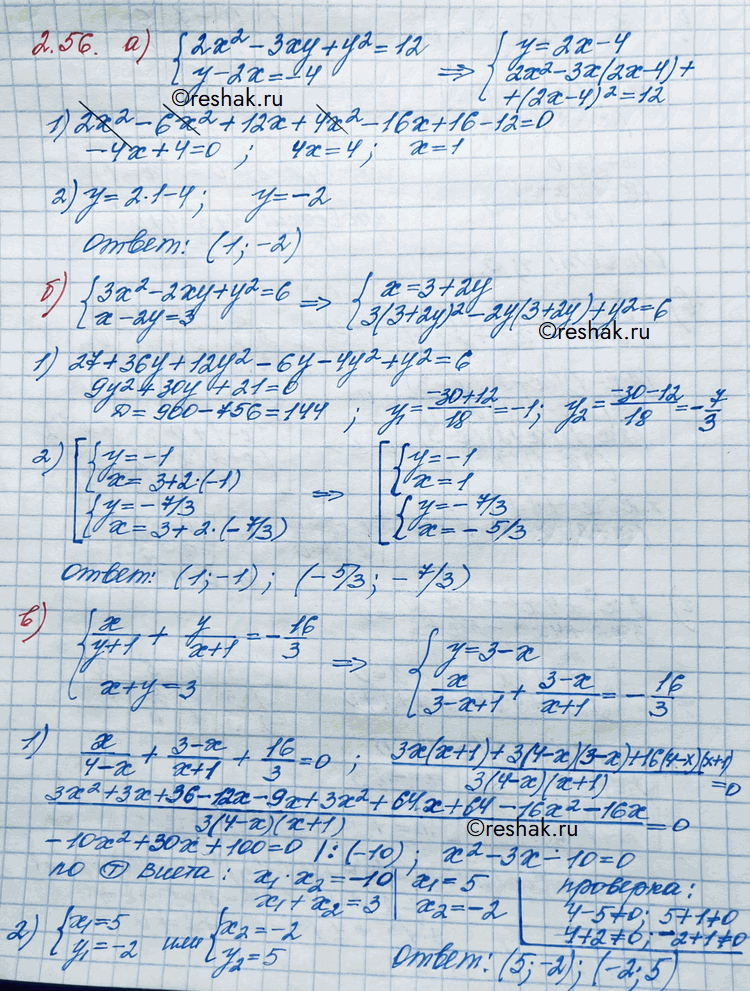 2.56. а) { 2x² - 3xy + y² = 12 ⇒ { y = 2x - 4
y - 2x = -4    2x² - 3x(2x - 4) +
©reshak.ru    + (2x - 4)² = 12
1) 2x² - 6x² + 12x + 4x² - 16x + 16 - 12 = 0
-4x + 4 = 0 ; 4x = 4 ; x = 1
2) y = 2·1 - 4 ; y = -2
Ответ: (1; -2)
б) { 3x² - 2xy + y² = 6 ⇒ { x = 3 + 2y
x - 2y = 3    3(3+2y)² - 2y(3+2y) + y² = 6
©reshak.ru
1) 27 + 36y + 12y² - 6y - 4y² + y² = 6
9y² + 30y + 21 = 0
D = 900 - 756 = 144 ; y₁ = (-30+12)/18 = -1 ; y₂ = (-30-12)/18 = -7/3
2) [ { y = -1 ⇒ [ { y = -1
x = 3 + 2·(-1)    x = 1
{ y = -7/3    { y = -7/3
x = 3 + 2·(-7/3)    x = -5/3
Ответ: (1; -1) ; (-5/3 ; -7/3)
в) { x/(y+1) + y/(x+1) = -16/3 ⇒ { y = 3 - x
x + y = 3    x/(3-x+1) + (3-x)/(x+1) = -16/3
1) x/(4-x) + (3-x)/(x+1) + 16/3 = 0 ; (3x(x+1) + 3(4-x)(3-x) + 16(4-x)(x+1))/(3(4-x)(x+1)) = 0
(3x² + 3x + 36 - 12x - 9x + 3x² + 64x + 64 - 16x² - 16x)/(3(4-x)(x+1)) = 0
©reshak.ru
-10x² + 30x + 100 = 0 |:(-10) ; x² - 3x - 10 = 0
по Т Виета: x₁·x₂ = -10 | x₁ = 5
x₁ + x₂ = 3 | x₂ = -2
проверка:
4-5≠0; 5+1≠0
4+2≠0; -2+1≠0
2) { x₁ = 5 или { x₂ = -2
y₁ = -2    y₂ = 5
Ответ: (5; -2); (-2; 5)